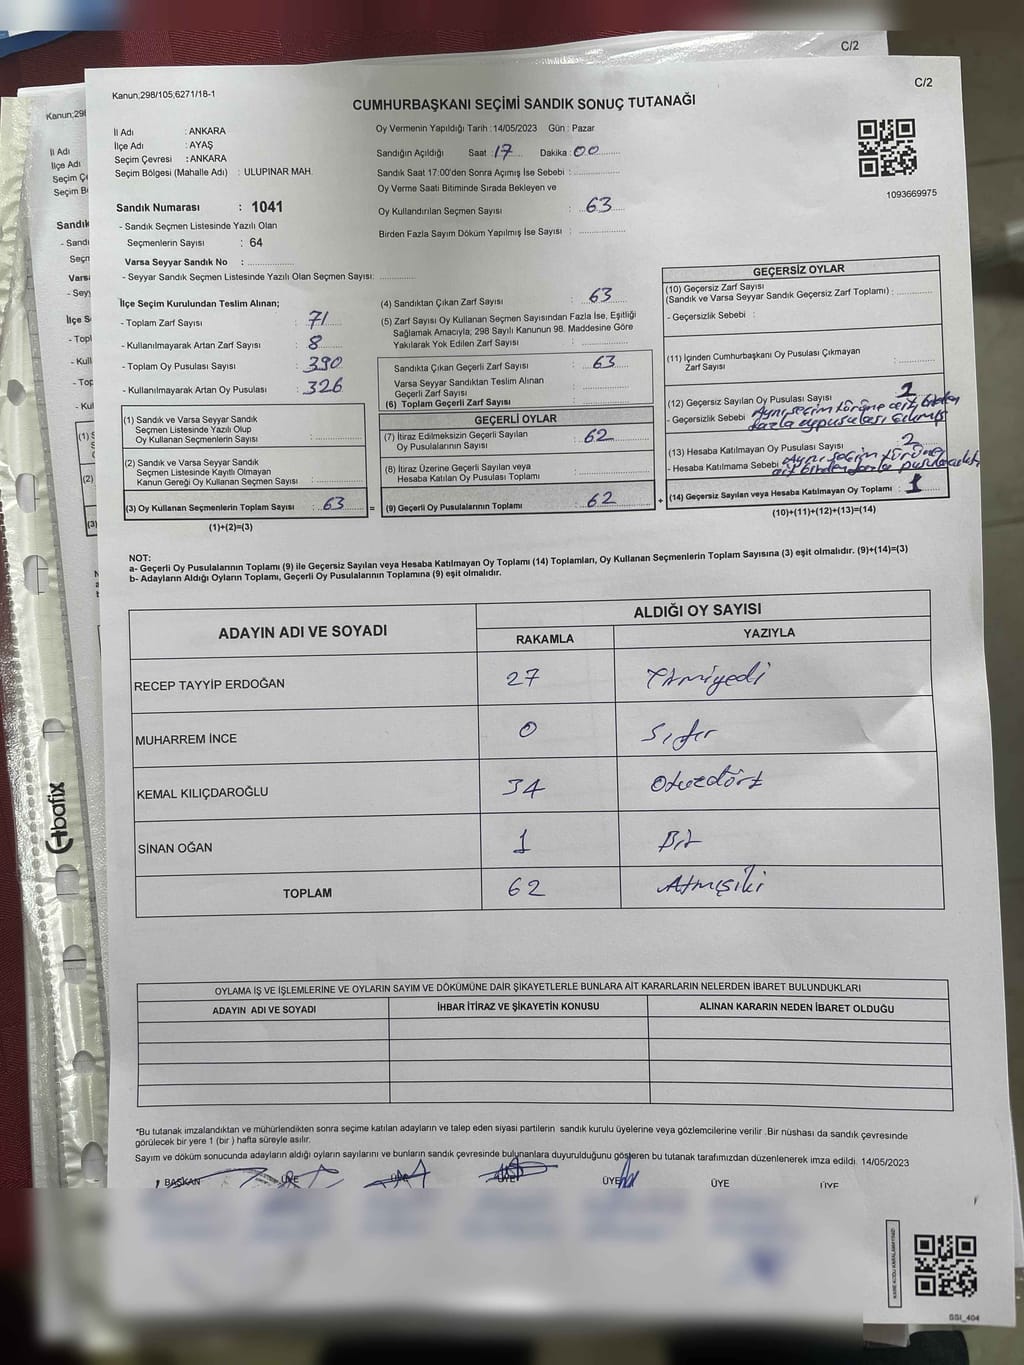 C/2
Kanun,298/105,6271/18-1
C/2
CUMHURBAŞKANI SEÇİMİ SANDIK SONUÇ TUTANAĞI
İl Adı : ANKARA
İlçe Adı : AYAŞ
Seçim Çevresi : ANKARA
Seçim Bölgesi (Mahalle Adı) : ULUPINAR MAH.
Oy Vermenin Yapıldığı Tarih : 14/05/2023 Gün : Pazar
Sandığın Açıldığı Saat : 17 Dakika : 00
Sandık Saat 17:00'den Sonra Açımış İse Sebebi :
Oy Verme Saati Bitiminde Sırada Bekleyen ve
Oy Kullandırılan Seçmen Sayısı : 63
Birden Fazla Sayım Döküm Yapılmış İse Sayısı :
1093669975
Sandık Numarası : 1041
- Sandık Seçmen Listesinde Yazılı Olan
Seçmenlerin Sayısı : 64
Varsa Seyyar Sandık No :
- Seyyar Sandık Seçmen Listesinde Yazılı Olan Seçmen Sayısı:
İlçe Seçim Kurulundan Teslim Alınan;
- Toplam Zarf Sayısı : 71
- Kullanılmayarak Artan Zarf Sayısı : 8
- Toplam Oy Pusulası Sayısı : 390
- Kullanılmayarak Artan Oy Pusulası : 326
(1) Sandık ve Varsa Seyyar Sandık
Seçmen Listesinde Yazılı Olup
Oy Kullanan Seçmenlerin Sayısı :
(2) Sandık ve Varsa Seyyar Sandık
Seçmen Listesinde Kayıtlı Olmayan
Kanun Gereği Oy Kullanan Seçmen Sayısı :
(3) Oy Kullanan Seçmenlerin Toplam Sayısı : 63
(1)+(2)=(3)
(4) Sandıktan Çıkan Zarf Sayısı : 63
(5) Zarf Sayısı Oy Kullanan Seçmen Sayısından Fazla İse, Eşitliği
Sağlamak Amacıyla; 298 Sayılı Kanunun 98. Maddesine Göre
Yakılarak Yok Edilen Zarf Sayısı :
Sandıkta Çıkan Geçerli Zarf Sayısı : 63
Varsa Seyyar Sandıktan Teslim Alınan
Geçerli Zarf Sayısı :
(6) Toplam Geçerli Zarf Sayısı :
GEÇERLİ OYLAR
(7) İtiraz Edilmeksizin Geçerli Sayılan
Oy Pusulalarının Sayısı : 62
(8) İtiraz Üzerine Geçerli Sayılan veya
Hesaba Katılan Oy Pusulası Toplamı :
= (9) Geçerli Oy Pusulalarının Toplamı : 62 +
GEÇERSİZ OYLAR
(10) Geçersiz Zarf Sayısı
(Sandık ve Varsa Seyyar Sandık Geçersiz Zarf Toplamı) :
- Geçersizlik Sebebi :
(11) İçinden Cumhurbaşkanı Oy Pusulası Çıkmayan
Zarf Sayısı :
(12) Geçersiz Sayılan Oy Pusulası Sayısı :
- Geçersizlik Sebebi : Aynı seçim türüne ait birden
fazla oy pusulası çıkmış
(13) Hesaba Katılmayan Oy Pusulası Sayısı : 2
- Hesaba Katılmama Sebebi : Aynı seçim türüne
ait birden fazla pusula
(14) Geçersiz Sayılan veya Hesaba Katılmayan Oy Toplamı : 1
(10)+(11)+(12)+(13)=(14)
NOT:
a- Geçerli Oy Pusulalarının Toplamı (9) ile Geçersiz Sayılan veya Hesaba Katılmayan Oy Toplamı (14) Toplamları, Oy Kullanan Seçmenlerin Toplam Sayısına (3) eşit olmalıdır. (9)+(14)=(3)
b- Adayların Aldığı Oyların Toplamı, Geçerli Oy Pusulalarının Toplamına (9) eşit olmalıdır.
ADAYIN ADI VE SOYADI
ALDIĞI OY SAYISI
RAKAMLA YAZIYLA
RECEP TAYYİP ERDOĞAN 27 Yirmiyedi
MUHARREM İNCE 0 Sıfır
KEMAL KILIÇDAROĞLU 34 Otuzdört
SİNAN OĞAN 1 Bir
TOPLAM 62 Atmışiki
OYLAMA İŞ VE İŞLEMLERİNE VE OYLARIN SAYIM VE DÖKÜMÜNE DAİR ŞİKAYETLERLE BUNLARA AİT KARARLARIN NELERDEN İBARET BULUNDUKLARI
ADAYIN ADI VE SOYADI İHBAR İTİRAZ VE ŞİKAYETİN KONUSU ALINAN KARARIN NEDEN İBARET OLDUĞU
*Bu tutanak imzalandıktan ve mühürlendikten sonra seçime katılan adayların ve talep eden siyasi partilerin sandık kurulu üyelerine veya gözlemcilerine verilir .Bir nüshası da sandık çevresinde
görülecek bir yere 1 (bir ) hafta süreyle asılır.
Sayım ve döküm sonucunda adayların aldığı oyların sayılarını ve bunların sandık çevresinde bulunanlara duyurulduğunu gösteren bu tutanak tarafımızdan düzenlenerek imza edildi. 14/05/2023
BAŞKAN ÜYE ÜYE ÜYE ÜYE ÜYE ÜYE
KARE KODU KARALAMAYINIZ!
SSI_404
bafix